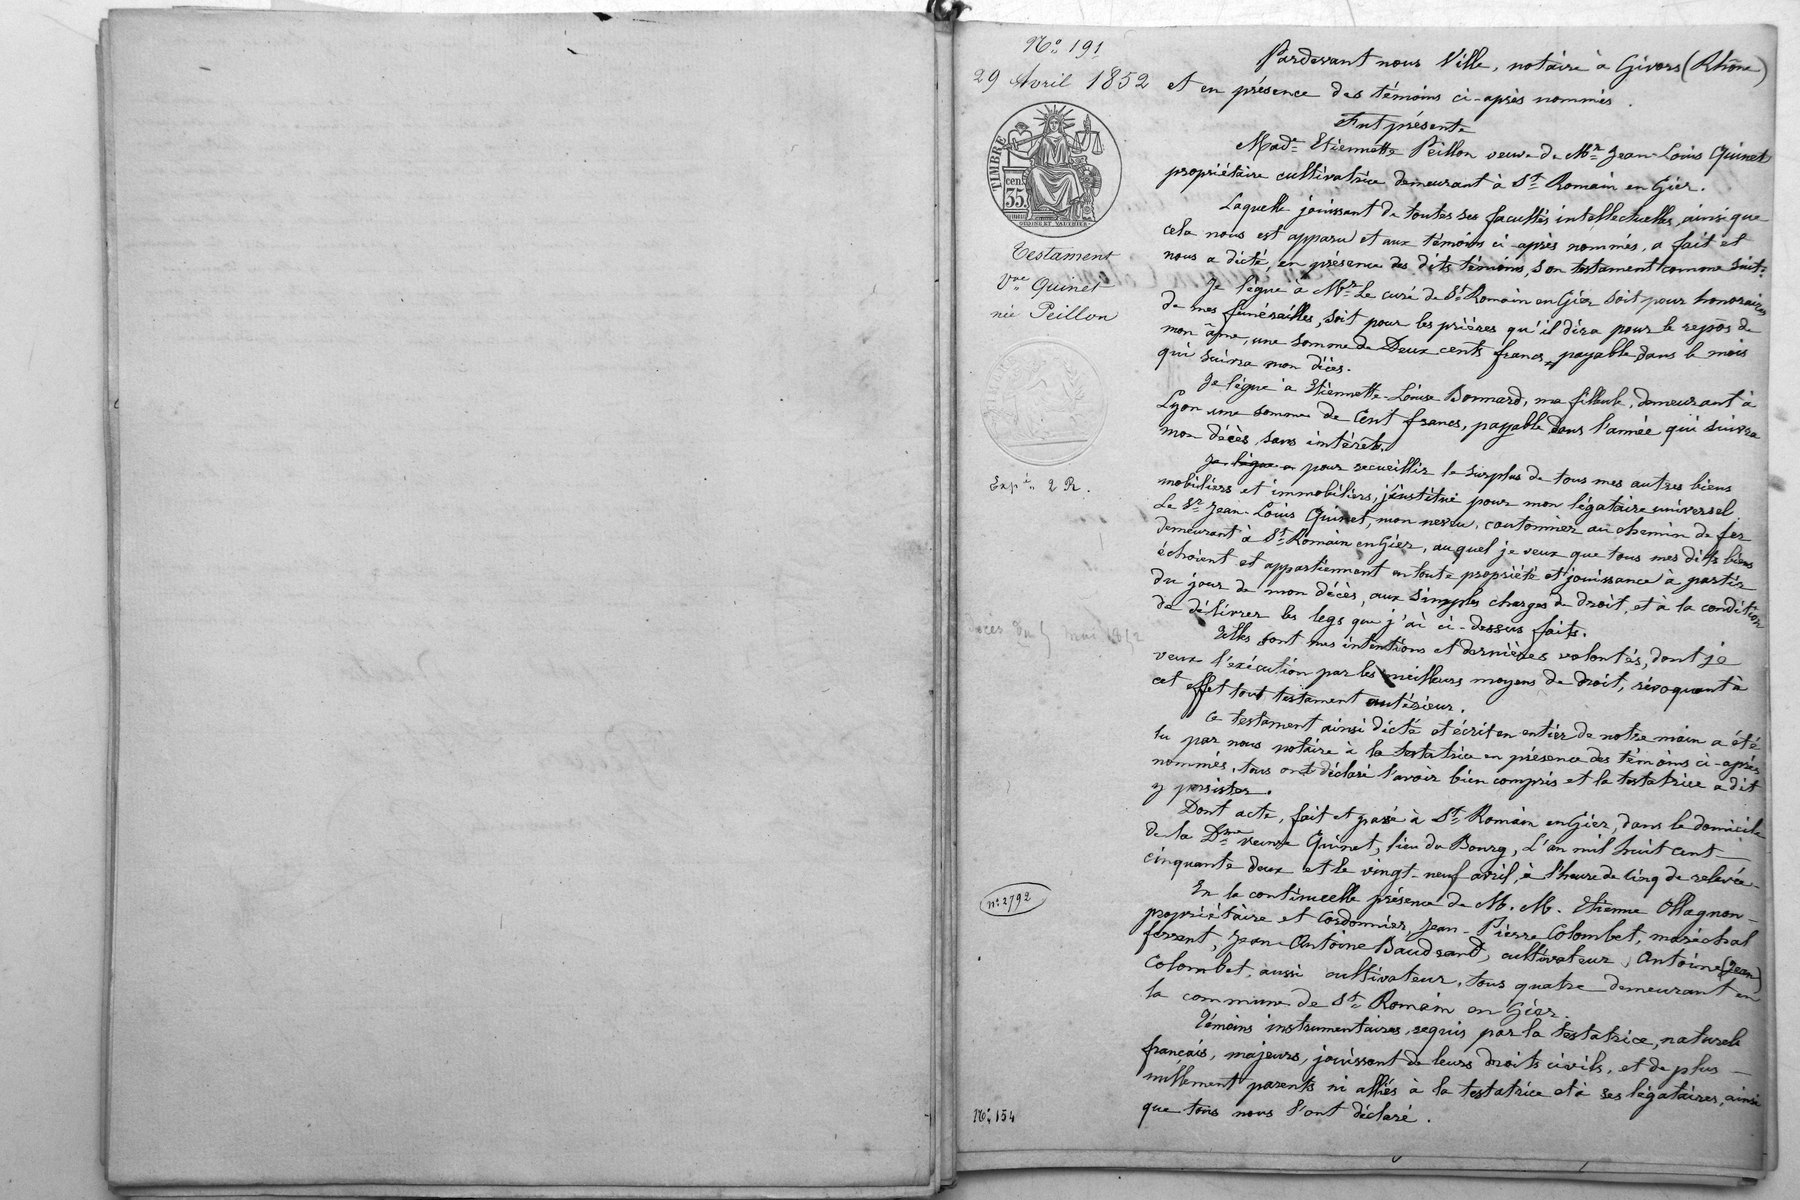 N° 191
29 Avril 1852
TIMBRE
cen.
35.
Testament
Vve Quinet
née Peillon
Expée. 2 R.
décès du 5 mai 1852
n° 2792
N° 154
Pardevant nous Ville, notaire à Givors (Rhône)
et en présence des témoins ci-après nommés.
Fut présente
Made Etiennette Peillon veuve de Mr Jean-Louis Quinet
propriétaire cultivatrice demeurant à St Romain en Gier.
Laquelle jouissant de toutes ses facultés intellectuelles, ainsi que
cela nous est apparu et aux témoins ci-après nommés, a fait et
nous a dicté, en présence des dits témoins, son testament comme suit:
Je lègue à Mr Le curé de St Romain en Gier soit pour honoraires
de mes funérailles, soit pour les prières qu'il dira pour le repos de
mon âme, une somme de Deux cents francs, payable dans le mois
qui suivra mon décès.
Je lègue à Etiennette-Louise Bonnard, ma filleule, demeurant à
Lyon une somme de Cent francs, payable dans l'année qui suivra
mon décès, sans intérêts.
Je lègue a pour recueillir le surplus de tous mes autres biens
mobiliers et immobiliers, j'institue pour mon légataire universel
Le Sr Jean-Louis Quinet, mon neveu, cantonnier au chemin de fer
demeurant à St Romain en Gier, auquel je veux que tous mes dits biens
échoient et appartiennent en toute propriété et jouissance à partir
du jour de mon décès, aux simples charges de droit, et à la condition
de délivrer les legs que j'ai ci-dessus faits.
Telles sont mes intentions et dernières volontés, dont je
veux l'exécution par les meilleurs moyens de droit, révoquant à
cet effet tout testament antérieur.
Ce testament ainsi dicté et écrit en entier de notre main a été
lu par nous notaire à la testatrice en présence des témoins ci-après
nommés, tous ont déclaré l'avoir bien compris et la testatrice a dit
y persister.
Dont acte, fait et passé à St Romain en Gier, dans le domicile
de la Dme veuve Quinet, lieu du Bourg, L'an mil huit cent
cinquante deux et le vingt-neuf avril, à l'heure de cinq de relevée.
En la continuelle présence de M. M. Etienne Ollagnon
propriétaire et Cordonnier, Jean-Pierre Colombet, maréchal
ferrent, Jean Antoine Baudrand, cultivateur, Antoine (Jean)
Colombet, aussi cultivateur, tous quatre demeurant en
la commune de St Romain en Gier.
Témoins instrumentaires, requis par la testatrice, naturels
français, majeurs, jouissant de leurs droits civils, et de plus
nullement parents ni alliés à la testatrice et à ses légataires, ainsi
que tous nous l'ont déclaré.